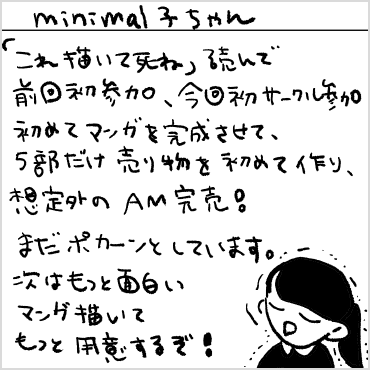 minimal子ちゃん
「これ描いて死ね」読んで
前回初参加、今回初サークル参加
初めてマンガを完成させて、
5部だけ売り物を初めて作り、
想定外のAM完売!
まだポカーンとしています。
次はもっと面白い
マンガ描いて
もっと用意するぞ!